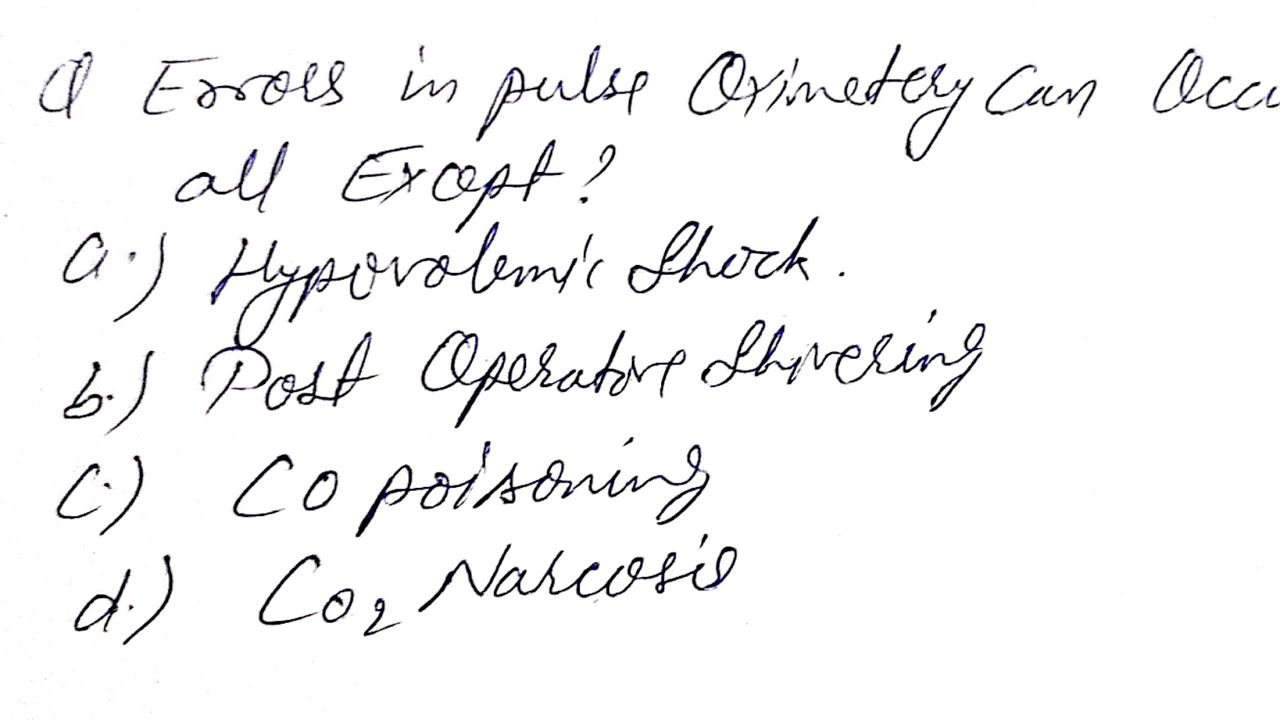 Q Errors in pulse Oximetery Can Occu
all Except?
a.) Hypovolemic Shock.
b.) Post Operative Shivering
c.) CO poisoning
d.) CO2 Narcosis